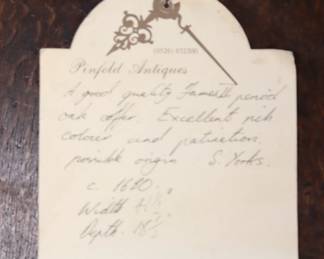 Pinfold Antiques
A good quality James II period
oak coffer. Excellent rich
colour and patination,
possible origin S. Yorks.
c. 1680.
Width
Depth